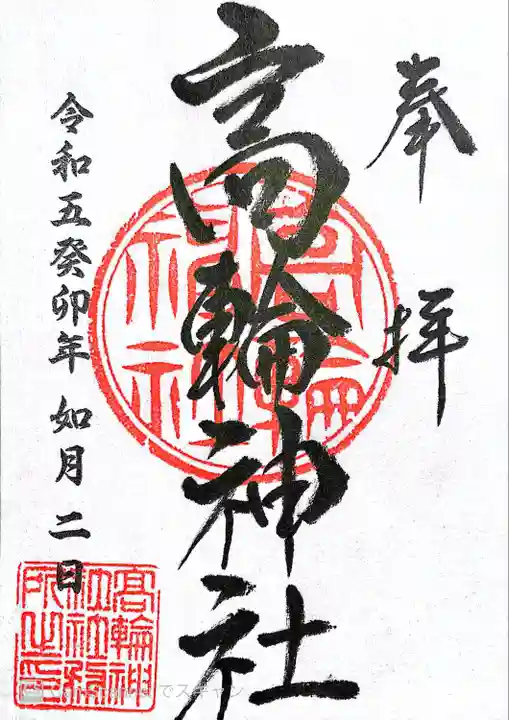 奉拝
高輪神社
令和五癸卯年 如月 二日
高輪神
社社務
所之印
でスキャン